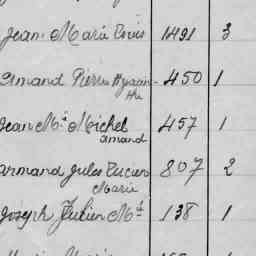 Jean Marie Louis 1491 3
Armand Pierre Hyacin- 450 1
the
Jean Mie Michel 457 1
Armand
Armand Jules Lucien 807 2
Marie
Joseph Julien Mie 138 1